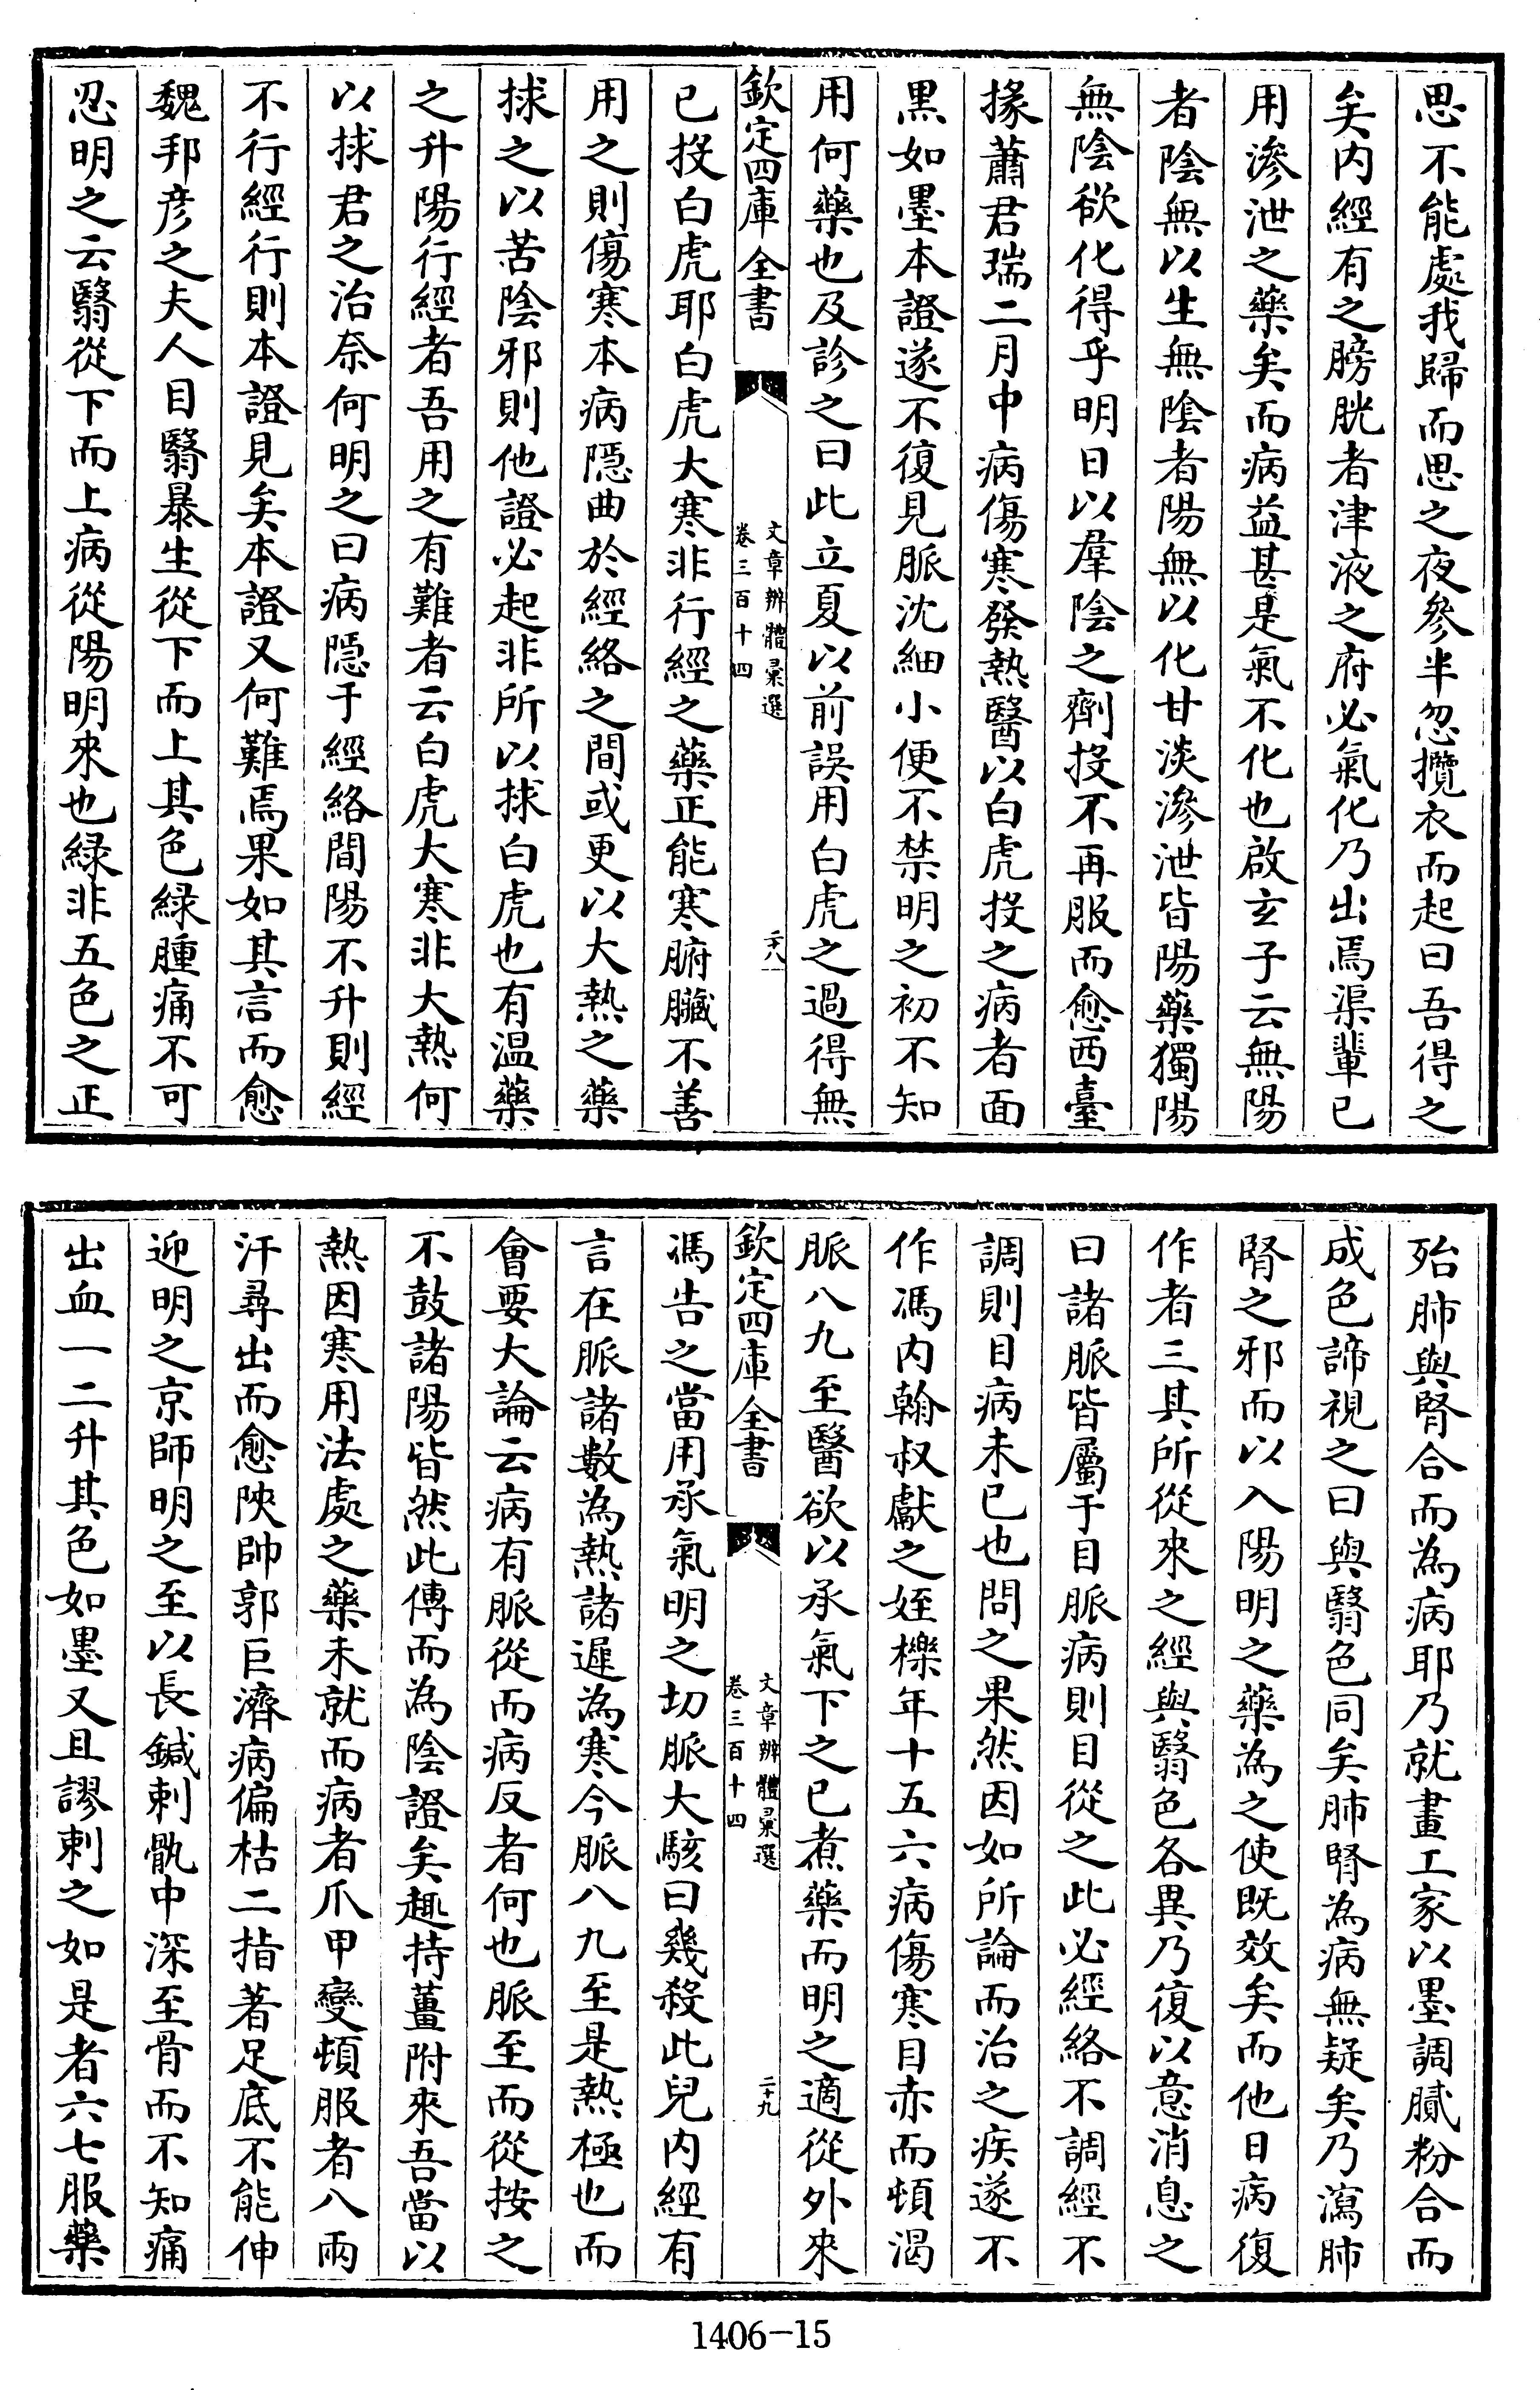 思不能處我歸而思之夜參半忽攬衣而起曰吾得之
矣内經有之膀胱者津液之府必氣化乃出焉渠輩已
用滲泄之藥矣而病益甚是氣不化也啟玄子云無陽
者陰無以生無陰者陽無以化甘淡滲泄皆陽藥獨陽
無陰欲化得乎明日以羣陰之劑投不再服而愈西臺
掾蕭君瑞二月中病傷寒發熱醫以白虎投之病者面
黑如墨本證遂不復見脈沈細小便不禁明之初不知
用何藥也及診之曰此立夏以前誤用白虎之過得無
欽定四庫全書
文章辨體彙選
卷三百十四
二十八
已投白虎耶白虎大寒非行經之藥正能寒腑臟不善
用之則傷寒本病隱曲於經絡之間或更以大熱之藥
捄之以苦陰邪則他證必起非所以捄白虎也有温藥
之升陽行經者吾用之有難者云白虎大寒非大熱何
以捄君之治奈何明之曰病隱于經絡間陽不升則經
不行經行則本證見矣本證又何難焉果如其言而愈
魏邦彦之夫人目翳暴生從下而上其色緑腫痛不可
忍明之云翳從下而上病從陽明來也緑非五色之正
殆肺與腎合而為病耶乃就畫工家以墨調膩粉合而
成色諦視之曰與翳色同矣肺腎為病無疑矣乃瀉肺
腎之邪而以入陽明之藥為之使既效矣而他日病復
作者三其所從來之經與翳色各異乃復以意消息之
曰諸脈皆屬于目脈病則目從之此必經絡不調經不
調則目病未已也問之果然因如所論而治之疾遂不
作馮内翰叔獻之姪櫟年十五六病傷寒目赤而頓渴
脈八九至醫欲以承氣下之已煮藥而明之適從外來
欽定四庫全書
文章辨體彙選
卷三百十四
二十九
馮告之當用承氣明之切脈大駭曰幾殺此兒内經有
言在脈諸數為熱諸遲為寒今脈八九至是熱極也而
會要大論云病有脈從而病反者何也脈至而從按之
不鼓諸陽皆然此傳而為陰證矣趣持薑附來吾當以
熱因寒用法處之藥未就而病者爪甲變頓服者八兩
汗尋出而愈陝帥郭巨濟病偏枯二指著足底不能伸
迎明之京師明之至以長鍼刺骫中深至骨而不知痛
出血一二升其色如墨又且謬刺之如是者六七服藥
1406-15